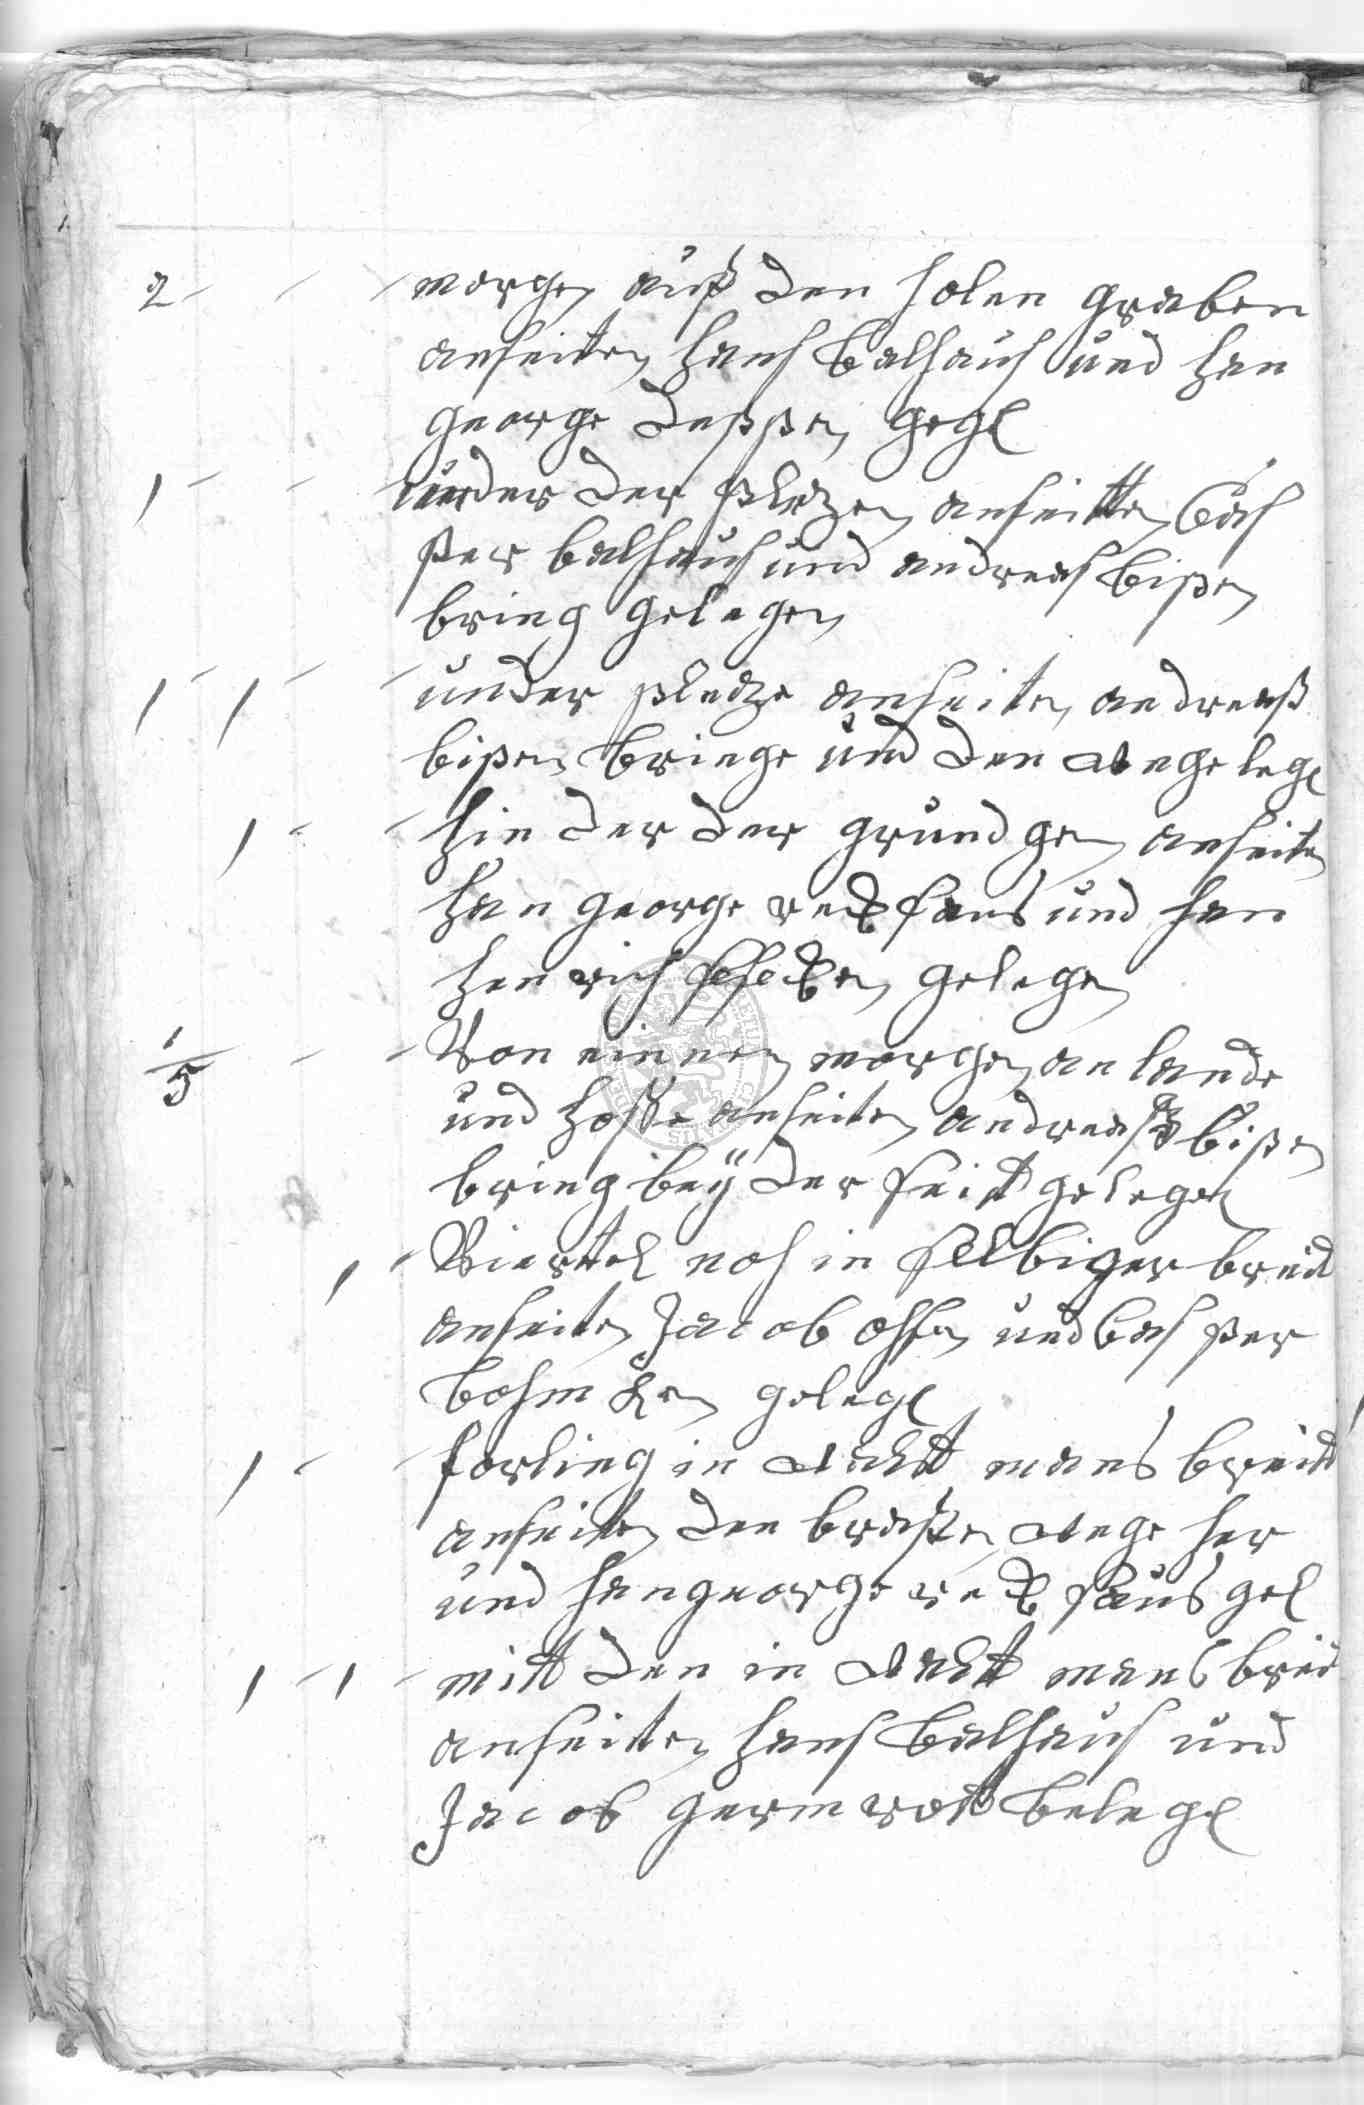 2 - - - morgen auß den holen graben
anseiten hans balhaus und han
george deppen gegl
1 - - under der pletzen anseitten Cas
per balhaus und andreas bißen
bring gelegen
1 - 1 - - under pledze anseiten andreaß
bißen bringe und den wege legl
1 - - hin der der grund gen anseiten
han george und han
henrich gelegen
1/5 - - Von einnen morgen an lande
und anseiten andreaß bißen
bring beÿ der gelegen
1 - Viertel noch in selbiger breid
anseiten Jacob und Casper
gelegl
1 - - forling in mans breid
anseiten den breiten wege her
und han george gel
1 - 1 - mitt den in mans breid
anseiten hans balhaus und
Jacob germerott belegl